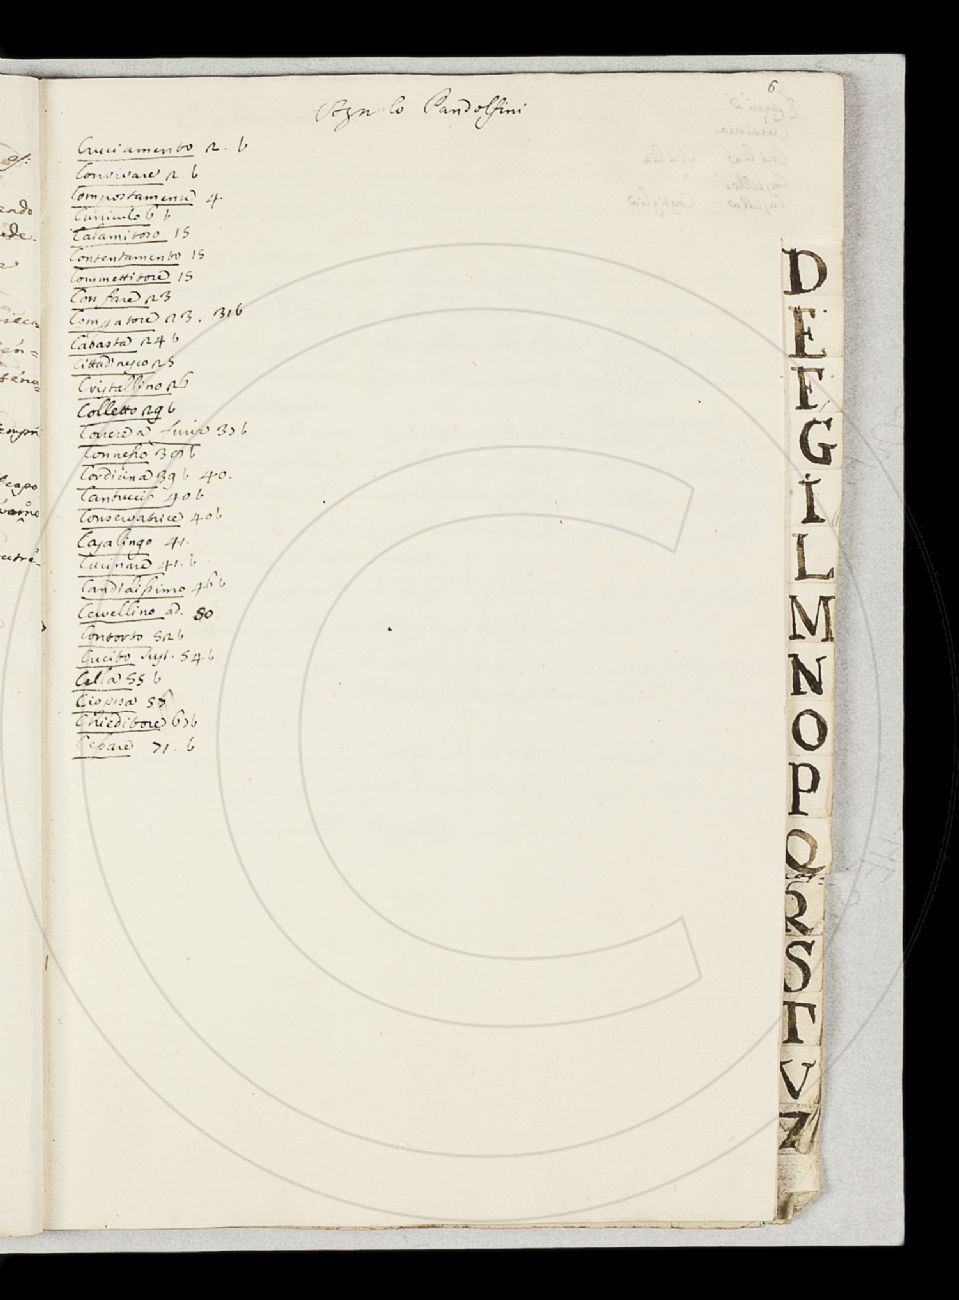 6
Agnolo Pandolfini
Cruciamento 2. b
Conservare 2 b
Compostamente 4.
6 b
Calamitoso 15
Contentamento 15
Commettitore 15
Confare 23
Compratore 23. 31b
Cabasta 24 b
Cittadinesco 25
Cristallino 26
Colletto 29 b
Correre a furia 37 b
Connesso 39 b
Cordicina 39 b 40.
Cantuccio 40 b
Conservatrice 40 b
Casalingo 41.
Cucinare 41. b
Candidissimo 46 b
Cervellino ad. 50
Contorto 52 b
Cucito sust. 54. b
Cella 55 b
Cioppa 58
Chieditore 67 b
71. b
D
E
F
G
I
L
M
N
O
P
Q
R
S
T
V
Z
C